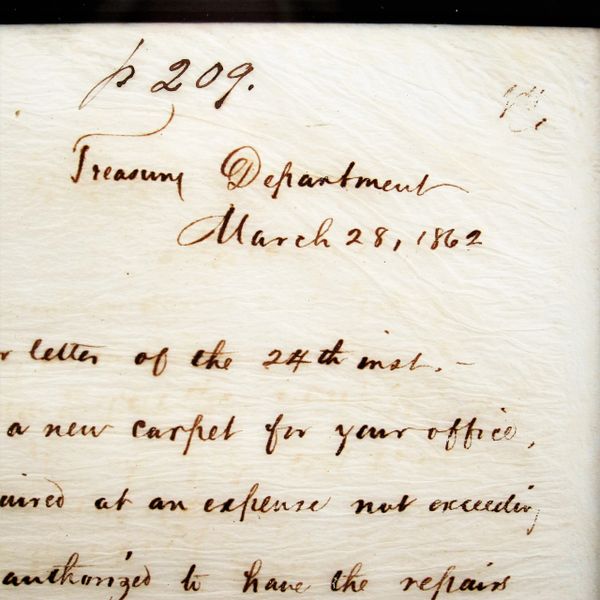 p 209.
Treasury Department
March 28, 1862
r letter of the 24th inst. -
a new carpet for your office,
uired at an expense not exceeding
authorized to have the repairs